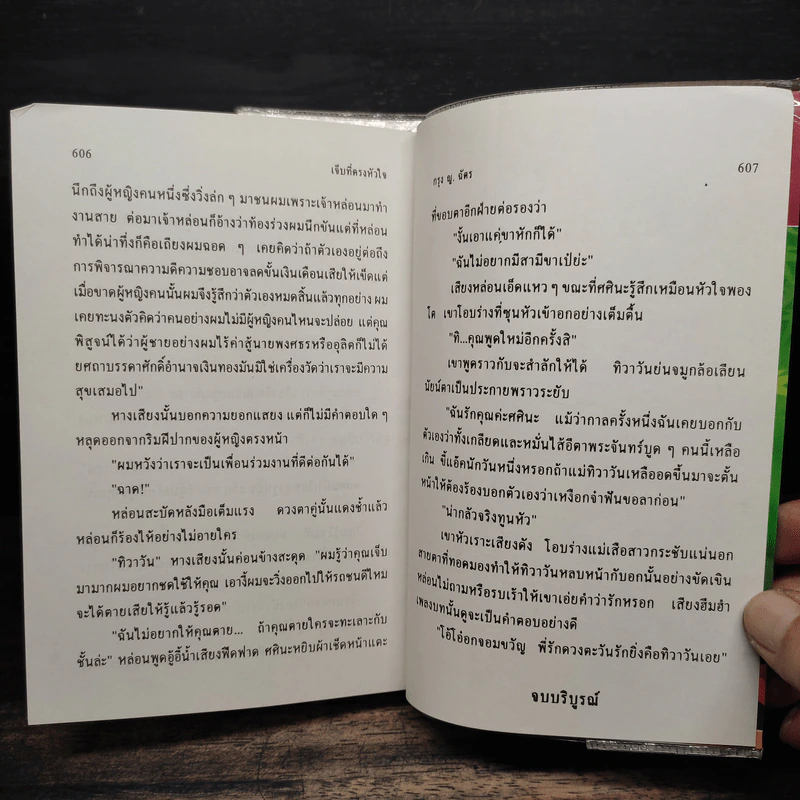 606
เจ็บที่ตรงหัวใจ
นึกถึงผู้หญิงคนหนึ่งซึ่งวิ่งลัก ๆ มาชนผมเพราะเจ้าหล่อนมาทำ
งานสาย ต่อมาเจ้าหล่อนก็อ้างว่าท้องร่วงผมนึกขันแต่ที่หล่อน
ทำได้น่าทึ่งก็คือเถียงผมฉอด ๆ เคยคิดว่าถ้าตัวเองอยู่ต่อถึง
การพิจารณาความดีความชอบอาจลดขั้นเงินเดือนเสียให้เข็ดแต่
เมื่อขาดผู้หญิงคนนั้นผมจึงรู้สึกว่าตัวเองหมดสิ้นแล้วทุกอย่าง ผม
เคยทะนงตัวคิดว่าคนอย่างผมไม่มีผู้หญิงคนไหนจะปล่อย แต่คุณ
พิสูจน์ได้ว่าผู้ชายอย่างผมไร้ค่าสู้นายพงศธรหรืออุลิตก็ไม่ได้
ยศถาบรรดาศักดิ์อำนาจเงินทองมันมิใช่เครื่องวัดว่าเราจะมีความ
สุขเสมอไป"
หางเสียงนั้นบอกความยอกแสยง แต่ก็ไม่มีคำตอบใด ๆ
หลุดออกจากริมฝีปากของผู้หญิงตรงหน้า
"ผมหวังว่าเราจะเป็นเพื่อนร่วมงานที่ดีต่อกันได้"
"ฉาด!"
หล่อนสะบัดหลังมือเต็มแรง ดวงตาคู่นั้นแดงช้ำแล้ว
หล่อนก็ร้องไห้อย่างไม่อายใคร
"ทิวาวัน" หางเสียงนั้นค่อนข้างสะดุด "ผมรู้ว่าคุณเจ็บ
มามากผมอยากชดใช้ให้คุณ เอางี้ผมจะวิ่งออกไปให้รถชนดีไหม
จะได้ตายเสียให้รู้แล้วรู้รอด"
"ฉันไม่อยากให้คุณตาย... ถ้าคุณตายใครจะทะเลาะกับ
ชั้นล่ะ" หล่อนพูดอู้อี้น้ำเสียงฟืดฟาด ศศินะหยิบผ้าเช็ดหน้าแตะ
กรุง ญ. ฉัตร
607
ที่ขอบตาอีกฝ่ายต่อรองว่า
"งั้นเอาแค่ขาหักก็ได้"
"ฉันไม่อยากมีสามีขาเป๋ย่ะ"
เสียงหล่อนเอ็ดแหว ๆ ขณะที่ศศินะรู้สึกเหมือนหัวใจพอง
โต เขาโอบร่างที่ซุนหัวเข้าอกอย่างเต็มตื้น
"ทิ...คุณพูดใหม่อีกครั้งสิ"
เขาพูดราวกับจะสำลักให้ได้ ทิวาวันย่นจมูกล้อเลียน
นัยน์ตาเป็นประกายพราวระยับ
"ฉันรักคุณค่ะศศินะ แม้ว่ากาลครั้งหนึ่งฉันเคยบอกกับ
ตัวเองว่าทั้งเกลียดและหมั่นไส้อีตาพระจันทร์บูด ๆ คนนี้เหลือ
เกิน ขี้แอ็คนักวันหนึ่งหรอกถ้าแม่ทิวาวันเหลืออดขึ้นมาจะตั้น
หน้าให้ต้องร้องบอกตัวเองว่าเหงือกจ๋าฟันขอลาก่อน"
"น่ากลัวจริงทูนหัว"
เขาหัวเราะเสียงดัง โอบร่างแม่เสือสาวกระชับแน่นอก
สายตาที่ทอดมองทำให้ทิวาวันหลบหน้ากับอกนั้นอย่างขัดเขิน
หล่อนไม่ถามหรือรบเร้าให้เขาเอ่ยคำว่ารักหรอก เสียงฮึมฮำ
เพลงบทนั้นดูจะเป็นคำตอบอย่างดี
"โอ้โอ๋อกจอมขวัญ พี่รักดวงตะวันรักยิ่งคือทิวาวันเอย"
จบบริบูรณ์